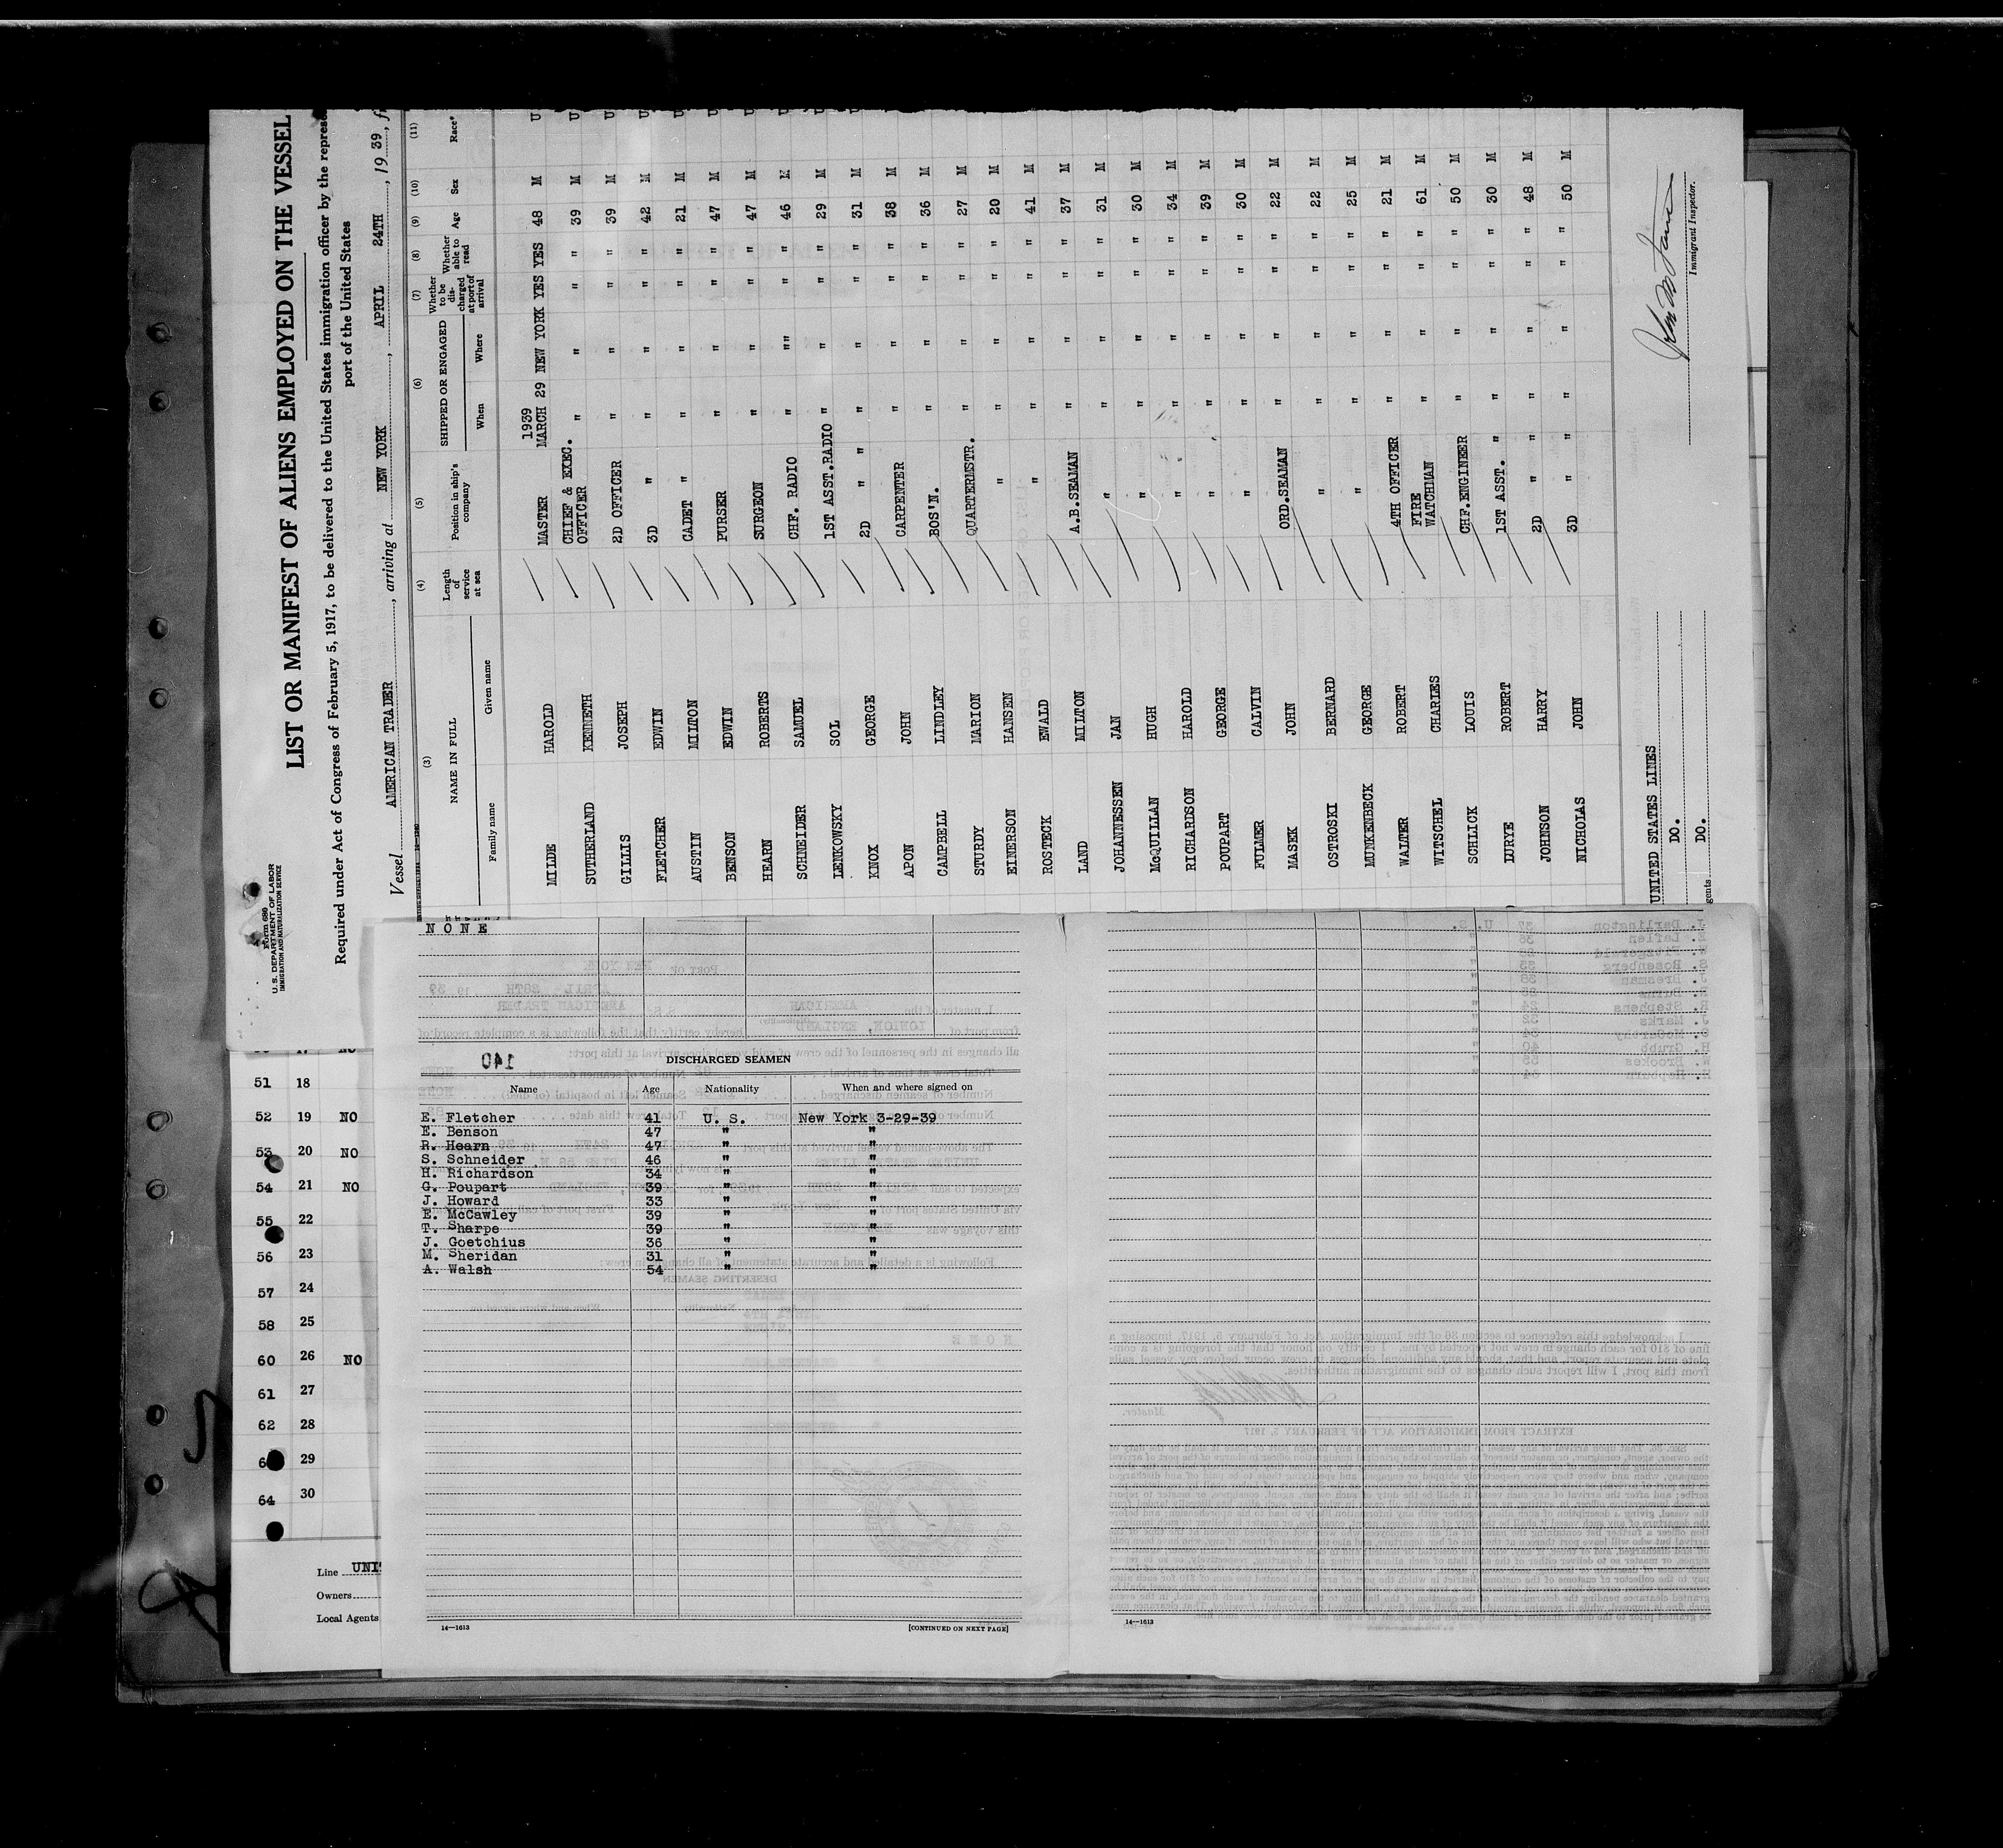 U. S. DEPARTMENT OF LABOR
IMMIGRATION AND NATURALIZATION SERVICE
Form 680
LIST OR MANIFEST OF ALIENS EMPLOYED ON THE VESSEL
Required under Act of Congress of February 5, 1917, to be delivered to the United States immigration officer by the
port of the United States
Vessel AMERICAN TRADER, arriving at NEW YORK, APRIL 24TH, 19 39,
(3) (4) (5) (6) (7) (8) (9) (10) (11)
NAME IN FULL Length of service at sea Position in ship's company SHIPPED OR ENGAGED Whether to be discharged at port of arrival Whether able to read Age Sex Race*
Family name Given name When Where
1939
MILDE HAROLD MASTER MARCH 29 NEW YORK YES YES 48 M U
SUTHERLAND KENNETH CHIEF & EXEC. OFFICER " " " " 39 M U
GILLIS JOSEPH 2D OFFICER " " " " 39 M U
FLETCHER EDWIN 3D " " " " " 42 M U
AUSTIN MILTON CADET " " " " " 21 M U
BENSON EDWIN PURSER " " " " 47 M U
HEARN ROBERTS SURGEON " " " " 47 M U
SCHNEIDER SAMUEL CHF. RADIO " "" " " 46 M U
LENKOWSKY SOL 1ST ASST.RADIO " " " " 29 M U
KNOX GEORGE 2D " " " " " 31 M U
APON JOHN CARPENTER " " " " 38 M
CAMPBELL LINDLEY BOS'N. " " " " 36 M
STURDY MARION QUARTERMSTR. " " " " 27 M
EINERSON HANSEN " " " " " 20 M
ROSTECK EWALD " " " " " 41 M
LAND MILTON A.B.SEAMAN " " " " 37 M
JOHANNESSEN JAN " " " " " 31 M
McQUILLAN HUGH " " " " " 30 M
RICHARDSON HAROLD " " " " " 34 M
POUPART GEORGE " " " " " 39 M
FULMER CALVIN " " " " " 30 M
MASEK JOHN ORD.SEAMAN " " " " 22 M
OSTROSKI BERNARD " " " " " 22 M
MUNKENBECK GEORGE " " " " " 25 M
WALTER ROBERT 4TH OFFICER " " " " 21 M
WITSCHEL CHARLES FIRE WATCHMAN " " " " 61 M
SCHLICK LOUIS CHF.ENGINEER " " " " 50 M
LURYE ROBERT 1ST ASST. " " " " " 30 M
JOHNSON HARRY 2D " " " " " 48 M
NICHOLAS JOHN 3D " " " " " 50 M
UNITED STATES LINES
DO.
DO.
Immigrant Inspector.
NONE
140
DISCHARGED SEAMEN
Name Age Nationality When and where signed on
E. Fletcher 41 U. S. New York 3-29-39
E. Benson 47 " "
R. Hearn 47 " "
S. Schneider 46 " "
H. Richardson 34 " "
G. Poupart 39 " "
J. Howard 33 " "
E. McCawley 39 " "
T. Sharpe 39 " "
J. Goetchius 36 " "
M. Sheridan 31 " "
A. Walsh 54 " "
14—1613
[CONTINUED ON NEXT PAGE]
14—1613
51 18
52 19 NO
53 20 NO
54 21 NO
55 22
56 23
57 24
58 25
60 26 NO
61 27
62 28
29
64 30
Line UNI
Owners
Local Agents